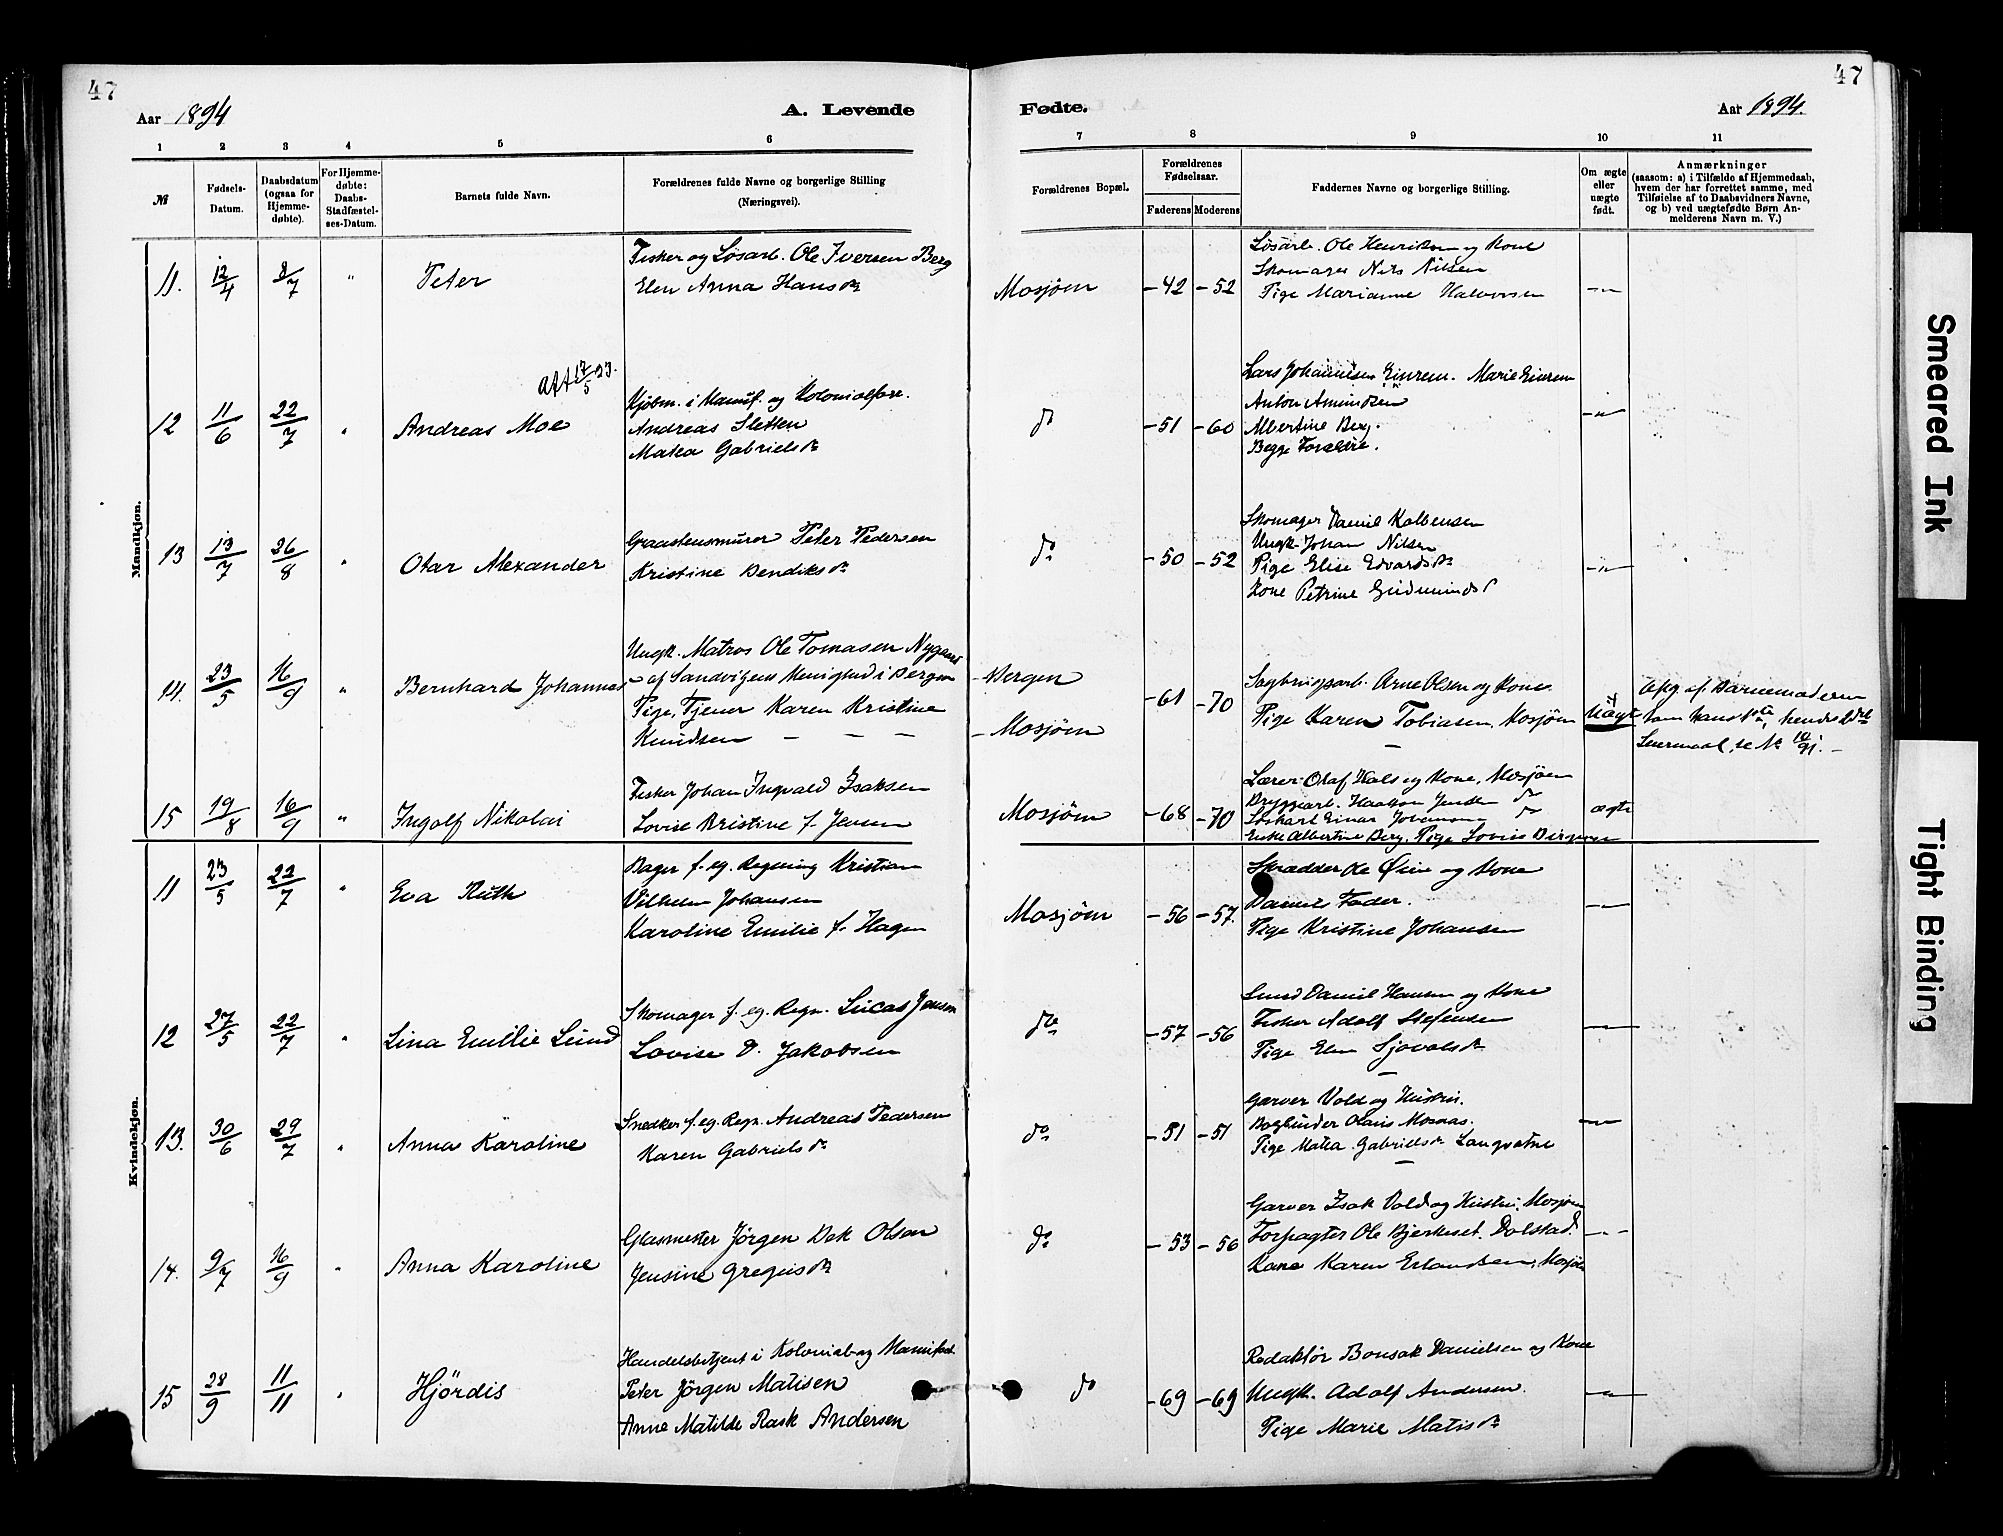 47
47
Aar 1894
A. Levende
Fødte.
Aar 1894.
1 2 3 4 5 6 7 8 9 10 11
№
Fødsels-
Datum.
Daabsdatum
(ogsaa for
Hjemme-
døbte).
For Hjemme-
døbte:
Daabs-
Stadfæstel-
ses-Datum.
Barnets fulde Navn.
Forældrenes fulde Navne og borgerlige Stilling
(Næringsvei).
Forældrenes Bopæl.
Forældrenes
Fødselsaar.
Faderens
Moderens
Faddernes Navne og borgerlige Stilling.
Om ægte
eller
uægte
født.
Anmærkninger
(saasom: a) i Tilfælde af Hjemmedaab,
hvem der har forrettet samme, med
Tilføielse af to Daabsvidners Navne,
og b) ved uægtefødte Børn An-
melderens Navn m. V.)
Mandkjøn.
11. 12/4 8/7 " Peter
Fisker og Løsarb. Ole Iversen Berg
Elen Anna Hansdr
Mosjøen -42 -52
Løsarb. Ole Henriksen og Kone
Skomager Nils Nilsen
Pige Marianne Halvorsen
-"-
12 11/6 22/7 " Andreas Moe
Att 17/5 33.
Kjøbm. i Manuf. og Kolonialforr.
Andreas Sletten
Matea Gabrielsdr
do -51 -60
Lars Johannesen Einrem. Marie Einrem
Anton Amundsen
Albertine Berg.
Begge Forældre.
-"-
13 13/7 26/8 " Otar Alexander
Graastensmurer Peter Pedersen
Kristine Bendiksdr
do -50 -52
Skomager Daniel Kolbensen
Ungk. Johan Nilsen
Pige Elise Edvardsdr
Kone Petrine Gudmundsd
-"-
14. 23/5 16/9 " Bernhard Johannes
Ungk. Matros Ole Tomasen Nygaard
af Sandvigens Menighed i Bergen
Pige, Tjener Karen Kristine
Knudsen - - -
- Bergen
- Mosjøen
-61 -70
Sagbrugsarb. Arne Olsen og Kone
Pige Karen Tobiasen, Mosjøen
Uægt
Opg. af Barnemoderen
som hans 1ste, hendes 2det
Leiermaal, se № 10/91. -
15 19/8 16/9 " Ingolf Nikolai
Fisker Johan Ingvald Isaksen
Lovise Kristine f. Jensen
Mosjøen -68 -70
Lærer Olaf Hals og Kone, Mosjøen
Bryggearb. Haakon Jensen do
Løskarl Einar Johansen do
Enke Albertine Berg. Pige Lovise Birgersen
ægte
Kvindekjøn.
11 23/5 22/7 " Eva Ruth
Bager f. eg. Regning Kristian
Vilhelm Johansen
Karoline Emilie f. Hagen
Mosjøen -56 -57.
Skrædder Ole Øien og Kone
Barnets Fader.
Pige Kristine Johansen
-"-
12 27/5 22/7 " Lina Emilie Lund
Skomager f. eg. Regn. Lucas Jenson
Lovise D. Jakobsen
do -57 -56
Smed Daniel Hansen og Kone
Fisker Adolf Stefensen
Pige Elen Sjovalsdr
-"-
13. 30/6 29/7 " Anna Karoline
Snedker f. eg. Regn. Andreas Pedersen
Karen Gabrielsdr
do -51 -51
Garver Vold og Hustru.
Bogbinder Olaus Mosnæs.
Pige Matea Gabrielsdr Langvatne
-"-
14. 9/7 16/9 " Anna Karoline
Glasmester Jørgen Dek Olsen
Jensine Gregusdr
do -53 -56
Garver Isak Vold og Hustru, Mosjøen
Forpagter Ole Bjerkeset, Dolstad.
Kone Karen Erlandsen, Mosjøen
-"-
15 28/9 11/11 " Hjördis
Handelsbetjent i Kolonial og Manufact
Peter Jörgen Matisen
Anne Matilde Rask Andersen
do -69 -69
Redaktør Bonsak Danielsen og Kone
Ungk. Adolf Andersen.
Pige Marie Matisdr
-"-
Smeared Ink
Tight Binding